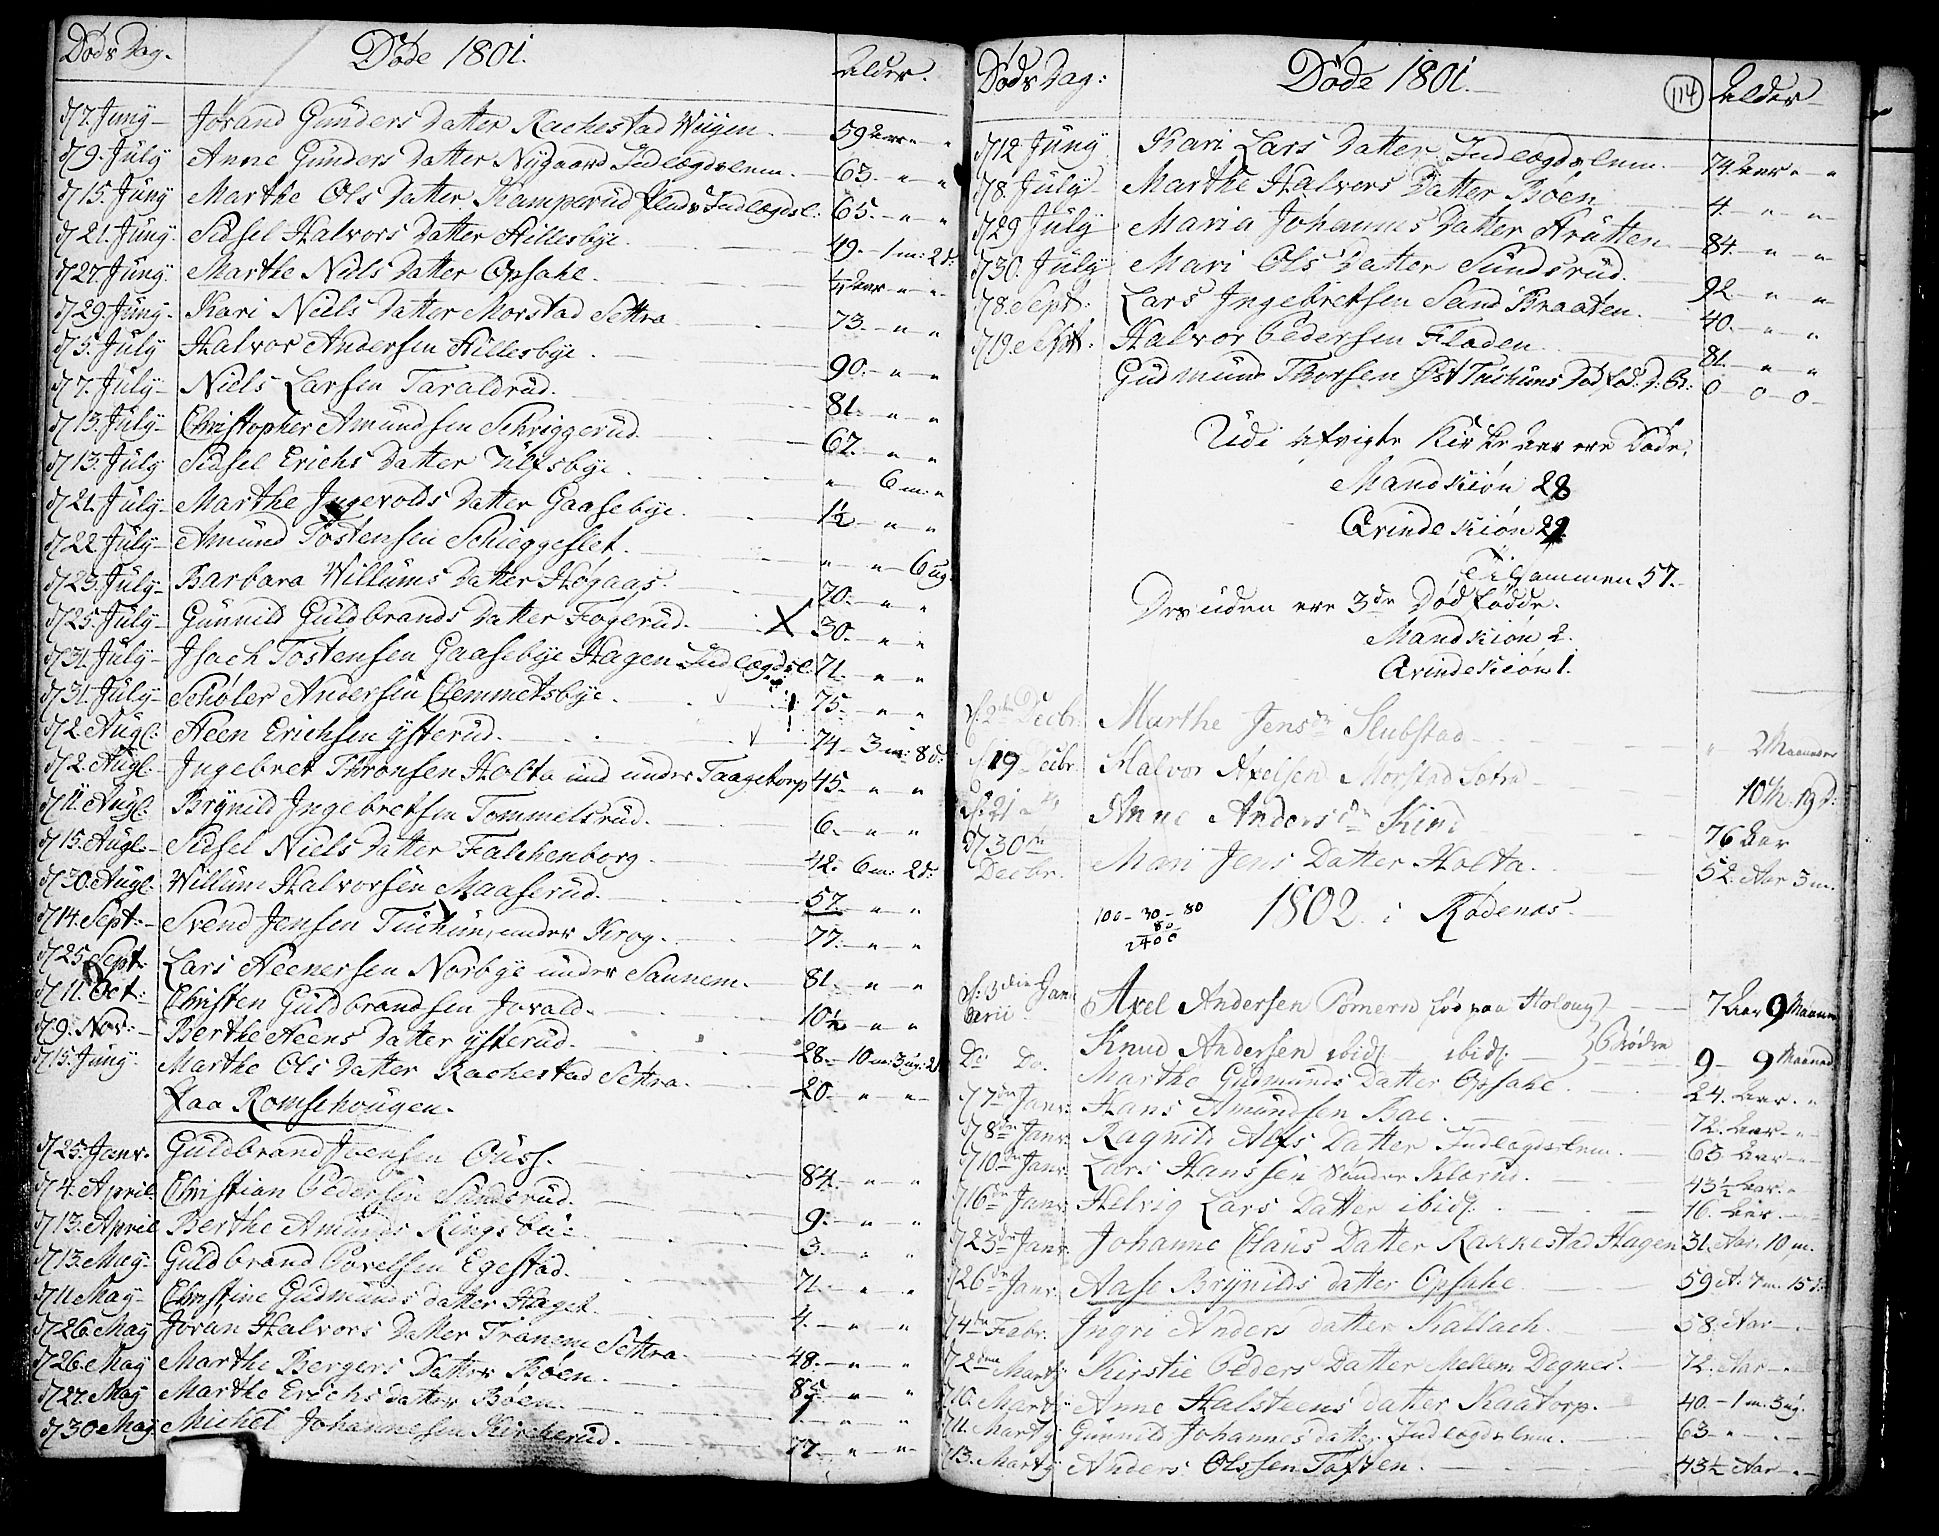 Døds Dag. Døde 1801. Alder.
d/7. Juny Jórand Gunders Datter Rachestad Wiigen. 59 Aar
d/9. July Anne Gunders Datter Nygaard Indlægdslem. 63.
d/15. Juny Marthe Ols Datter Kamperud Indlægdsl: 65.
d/21. Juny Sidsel Halvors Datter Hillesbye. 49 - 1 m: 2 d:
d/27. Juny Marthe Niels Datter Opsahe. Aar
d/29. Juny Kari Niels Datter Morstad Settra 73.
d/5. July Halvor Andersen Hillesbye. 90.
d/7. July Niels Larsen Taraldrud. 81.
d/13. July Christopher Amundsen Schriggerud. 67.
d/13. July Sidsel Erichs Datter Ulfsbye. 6 m:
d/21. July Marthe Ingevolds Datter Gaasebye. 1½
d/22 July Amund Tostensen Schieggeslet. 6 ug:
d/23. July Barbara Willums Datter Høgaas. 70.
d/25. July Gunnild Guldbrands Datter Fogerud. X 30.
d/31. July Isach Tostensen Gaasebye Hagen Indlægdsl 71.
d/31. July Schøler Andersen Clemmetsbye. 75.
d/2. Augl: Heen Erichsen ysterud. 74 - 3 m: 8 d:
d/2. Augl. Ingebret Thronsen Holta under Taagetorp 45.
d/11. Augl: Brynild Ingebretsen Tommelsrud. 6.
d/15. Augl. Sidsel Niels Datter Falchenborg. 42. 6 m: 2 d:
d/30. Augl: Willum Halvorsen Maaserud. 57.
d/14. Sept: Svend Jensen Tuchun, under Krog. 77.
d/25 Sept. Lars Heenersen Norbye under Sannem. 81.
d/11. Oct: Christen Guldbrandsen Jovald. 10½
d/9. Nov: Berthe Heens Datter ysterud. 28. 10 m: 3 ug: 2 d.
d/15. Juny. Marthe Ols Datter Rachestad Settra. 20.
paa Romsehougen.
d/25. Janr. Guldbrand Joensen Øuss. 84.
d/4. April Christian Pedersen Sundsrud. 9.
d/13. April Berthe Amunds 3.
d/13. May Guldbrand Povelsen Egestad. 71.
d/11 May Christine Gudmunds datter Haget. 4.
d/26. May Joran Halvors Datter Tranem Settra 48.
d/26. May Marthe Bergers Datter Bøen.
d/27. May Marthe Erichs datter Bøen.
d/30 May Michel Johannesen Kircherud. 77.
Døds Dag: Døde 1801. 114 Alder
d/12 Juny Kari Lars Datter Indlægdslem. 74. Aar
d/8. July Marthe Halvors Datter Bøen 4.
d/29 July Maria Johannes Datter Krutten. 84.
d/30. July Mari Ols Datter Sundsrud. 92
d/8. Sept: Lars Ingebretsen Sand Braaten. 40.
d/19. Sept. Halvor Pedersen Floden 81.
Gudmund Thorsen Øst Tuchuns Død fød. 0 - 0 - 0
Udi afvigte Kirke Aar ere Døde.
Mandkiøn 28
Qvindekiøn 29
Tilsammen 57.
Desuden ere 3de Død fødde.
Mandkiøn 2.
Qvindekiøn 1.
d: 2den Decbr. Marthe Jens dr Slubstad 2 Maaneder
d: 19 Decbr. Halvor Axelsen Morstad Setra 10 M. 19 d:
d: 21 Anne Anders dr Kind 76 Aar
d/30te Decbr. Mari Jens Datter Holta. 52. Aar 3 m.
100 - 30 - 80 1802. i Rødenæs.
80
2400
d: 3die Januarii Axel Andersen Pomern fød paa Holvug 7 Aar 9 Maaned
Do. Do. Knud Andersen ibid. ibid: Brødre 9 - 9 Maaned
d/7de Janr: Marthe Gudmunds Datter Opsahe 24. Aar.
d/8de Janr. Hans Amundsen Bae. 72. Aar
d/10de Janr. Ragnild Alfs Datter Indlægdslem. 63 Aar
d/16de Janr. Lars Hanssen under Klærn. 43½ Aar.
Helvig Lars Datter ibid. 76. Aar.
d/23de Janr. Johanne Claus Datter Rakkestad Hagen 31. Aar. 10 m.
d/26de Janr. Aase Brynilds datter Opsahe 59 A. 7 m. 15 d:
d/4de Febr. Ingri Anders datter Kallach. 58. Aar
d/2den Marty. Kirstie Peders Datter Mellem Degnes. 72. Aar
d/10. Marty Anne Halsteens datter Kaatorp. 40. - 1 m. 3 ug.
d/11. Marty. Gunnild Johannes datter Indlægdslem. 63
d/13. Marty Anders Olssen Toften. 43½ Aar